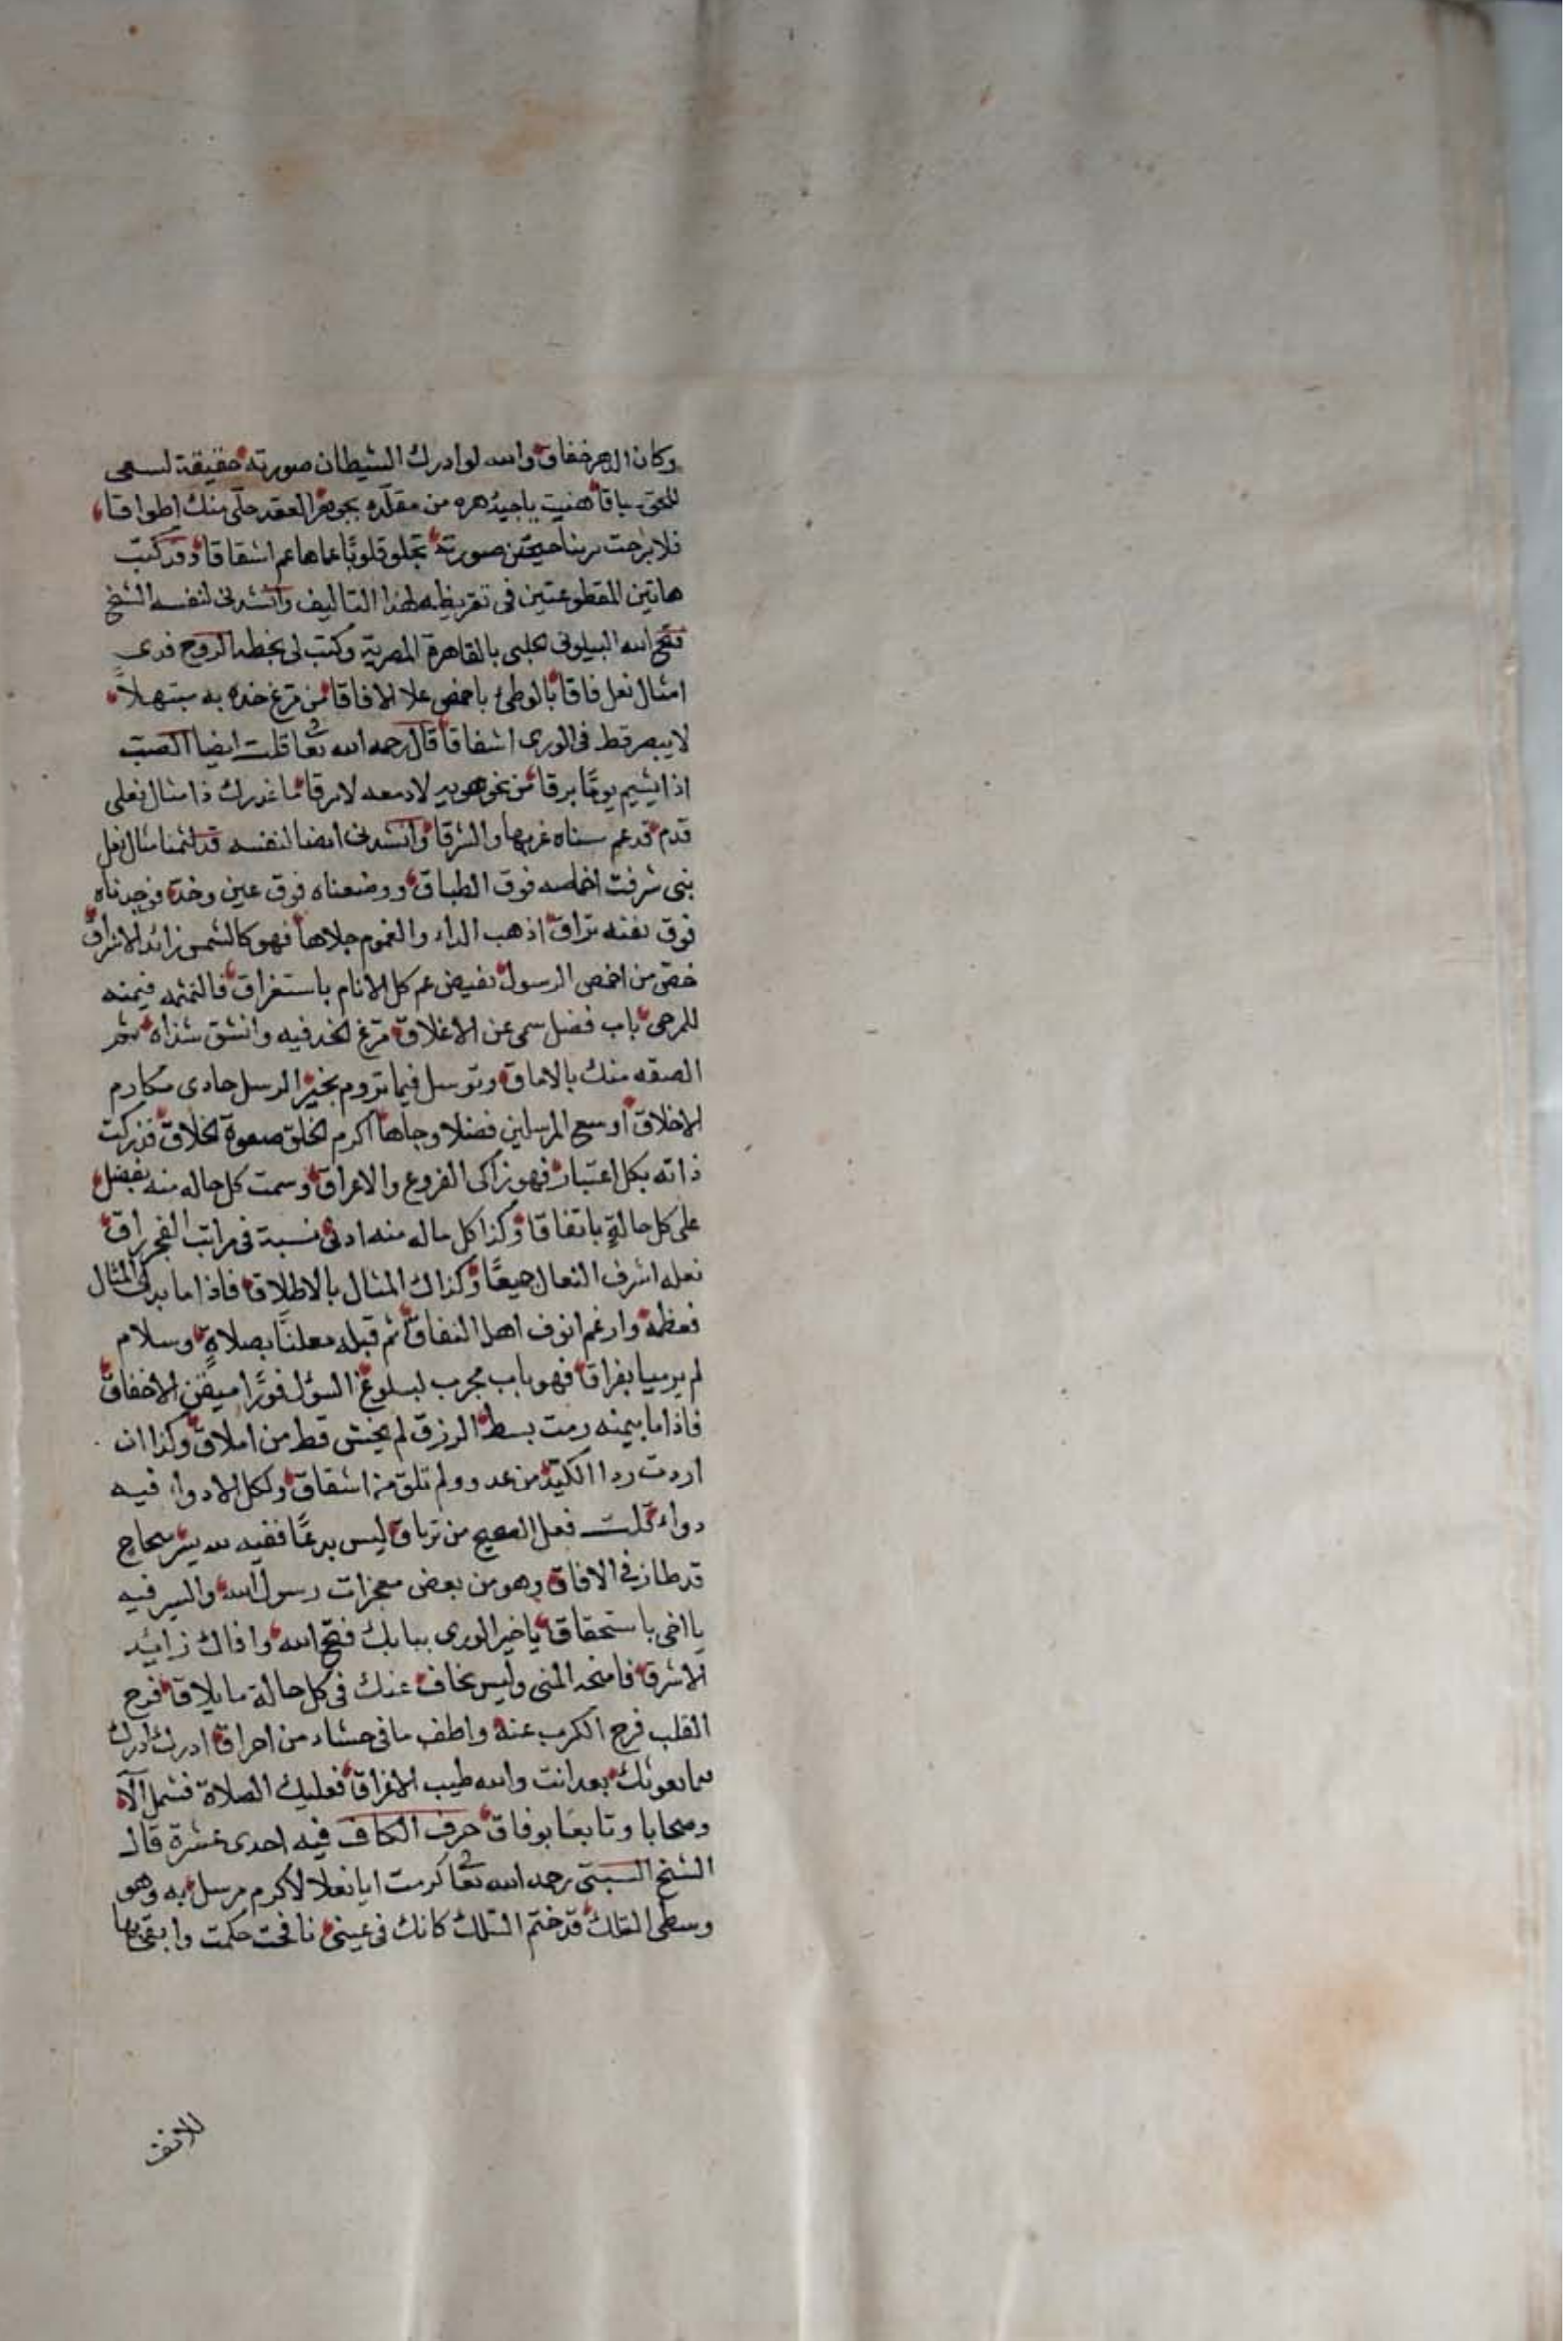 وكان الدهر خفاق والله لو ادرك الشيطان صورته حقيقة لسعى
للحق سباقا هنيت ياجيد هره من مقلده بجوهر العقد حلى منك اطواقا
فلا برحت ترينا حين صورته تجلو قلوبًا عماها عم اشقاقا وقد كتب
هاتين المقطوعتين فى تقريظه لهذا التاليف وانشدنى لنفسه الشيخ
فتح الله البيلونى الحلبى بالقاهرة المصرية وكتب لى بخطه الروح فدى
امثال نعل فاقا بالوطئ باخمص علا الافاقا من مرغ خده به مبتهلاً
لا يبصر قط فى الورى اشفاقا قال رحمه الله تعا قلت ايضا الصب
اذا يشيم يومًا برقا من نحو هويد لا دمعه لا برقا ما غدرك ذا مثال نعلى
قدم قد عم سناه غربها والشرقا وانشدنى ايضا لنفسه قد لثمنا مثال نعل
نبى شرفت اخمصه فوق الطباق ووضعناه فوق عين وخد فوجدناه
فوق نفثه تراق اذهب الداء والغموم جلاها فهو كالشمس زائد الاشراق
خص من اخمص الرسول بفيض عم كل الانام باستغراق فالتثمه فيمنه
للمرجى باب فضل سمى عن الاغلاق مرغ الخد فيه وانشق شذاه ثم
الصقه منك بالاماق وتوسل فيما تروم بخير الرسل حادى مكارم
الاخلاق اوسع المرسلين فضلا وجاها اكرم الخلق صفوة الخلاق فزكت
ذاته بكل اعتبار فهو زاكى الفروع والاعراق وسمت كل حاله منه بفضل
على كل حالةٍ باتفاقا وكذا كل ماله منه ادنى نسبة فى مراتب الفجر راق
نعله اشرف النعال جميعًا وكذاك المثال بالاطلاق فاذا ما بدا لك المثال
فعظمه وارغم انوف اهل النفاق ثم قبله معلنًا بصلاةٍ وسلام
لم يرميا بفراق فهو باب مجرب لبلوغ السؤل فورًا ميقن الاخفاق
فاذا ما بيمنه رمت بسط الرزق لم تخش قط من املاق وكذا ان
اردت ردا الكيد من عدو ولم تلق منه اشقاق ولكل الادواء فيه
دواء قلت فعل الصحيح من ترياق ليس بدعًا ففيه لله سر نجاح
قد طار فى الافاق وهو من بعض معجزات رسول الله والسر فيه
يا اخى باستحقاق يا خير الورى ببابك فتح الله وافاك زائد
الاشرق فامنحه المنى وليس بخاف عنك فى كل حالة ما يلاق فرح
القلب فرج الكرب عنه واطف ما فى حشاه من احراق ادرك ادرك
بعد انت والله طيب الاغراق فعليك الصلاة فشمل آلا
وصحابا وتابعًا بوفاق حرف الكاف فيه احدى عشرة قال
الشيخ السبتى رحمه الله تعا كرمت ايا نعلا لاكرم مرسل به وهو
وسطى السلك قد ختم السلك كانك فى عينى نافخت حكمت وابقى بها
للانف